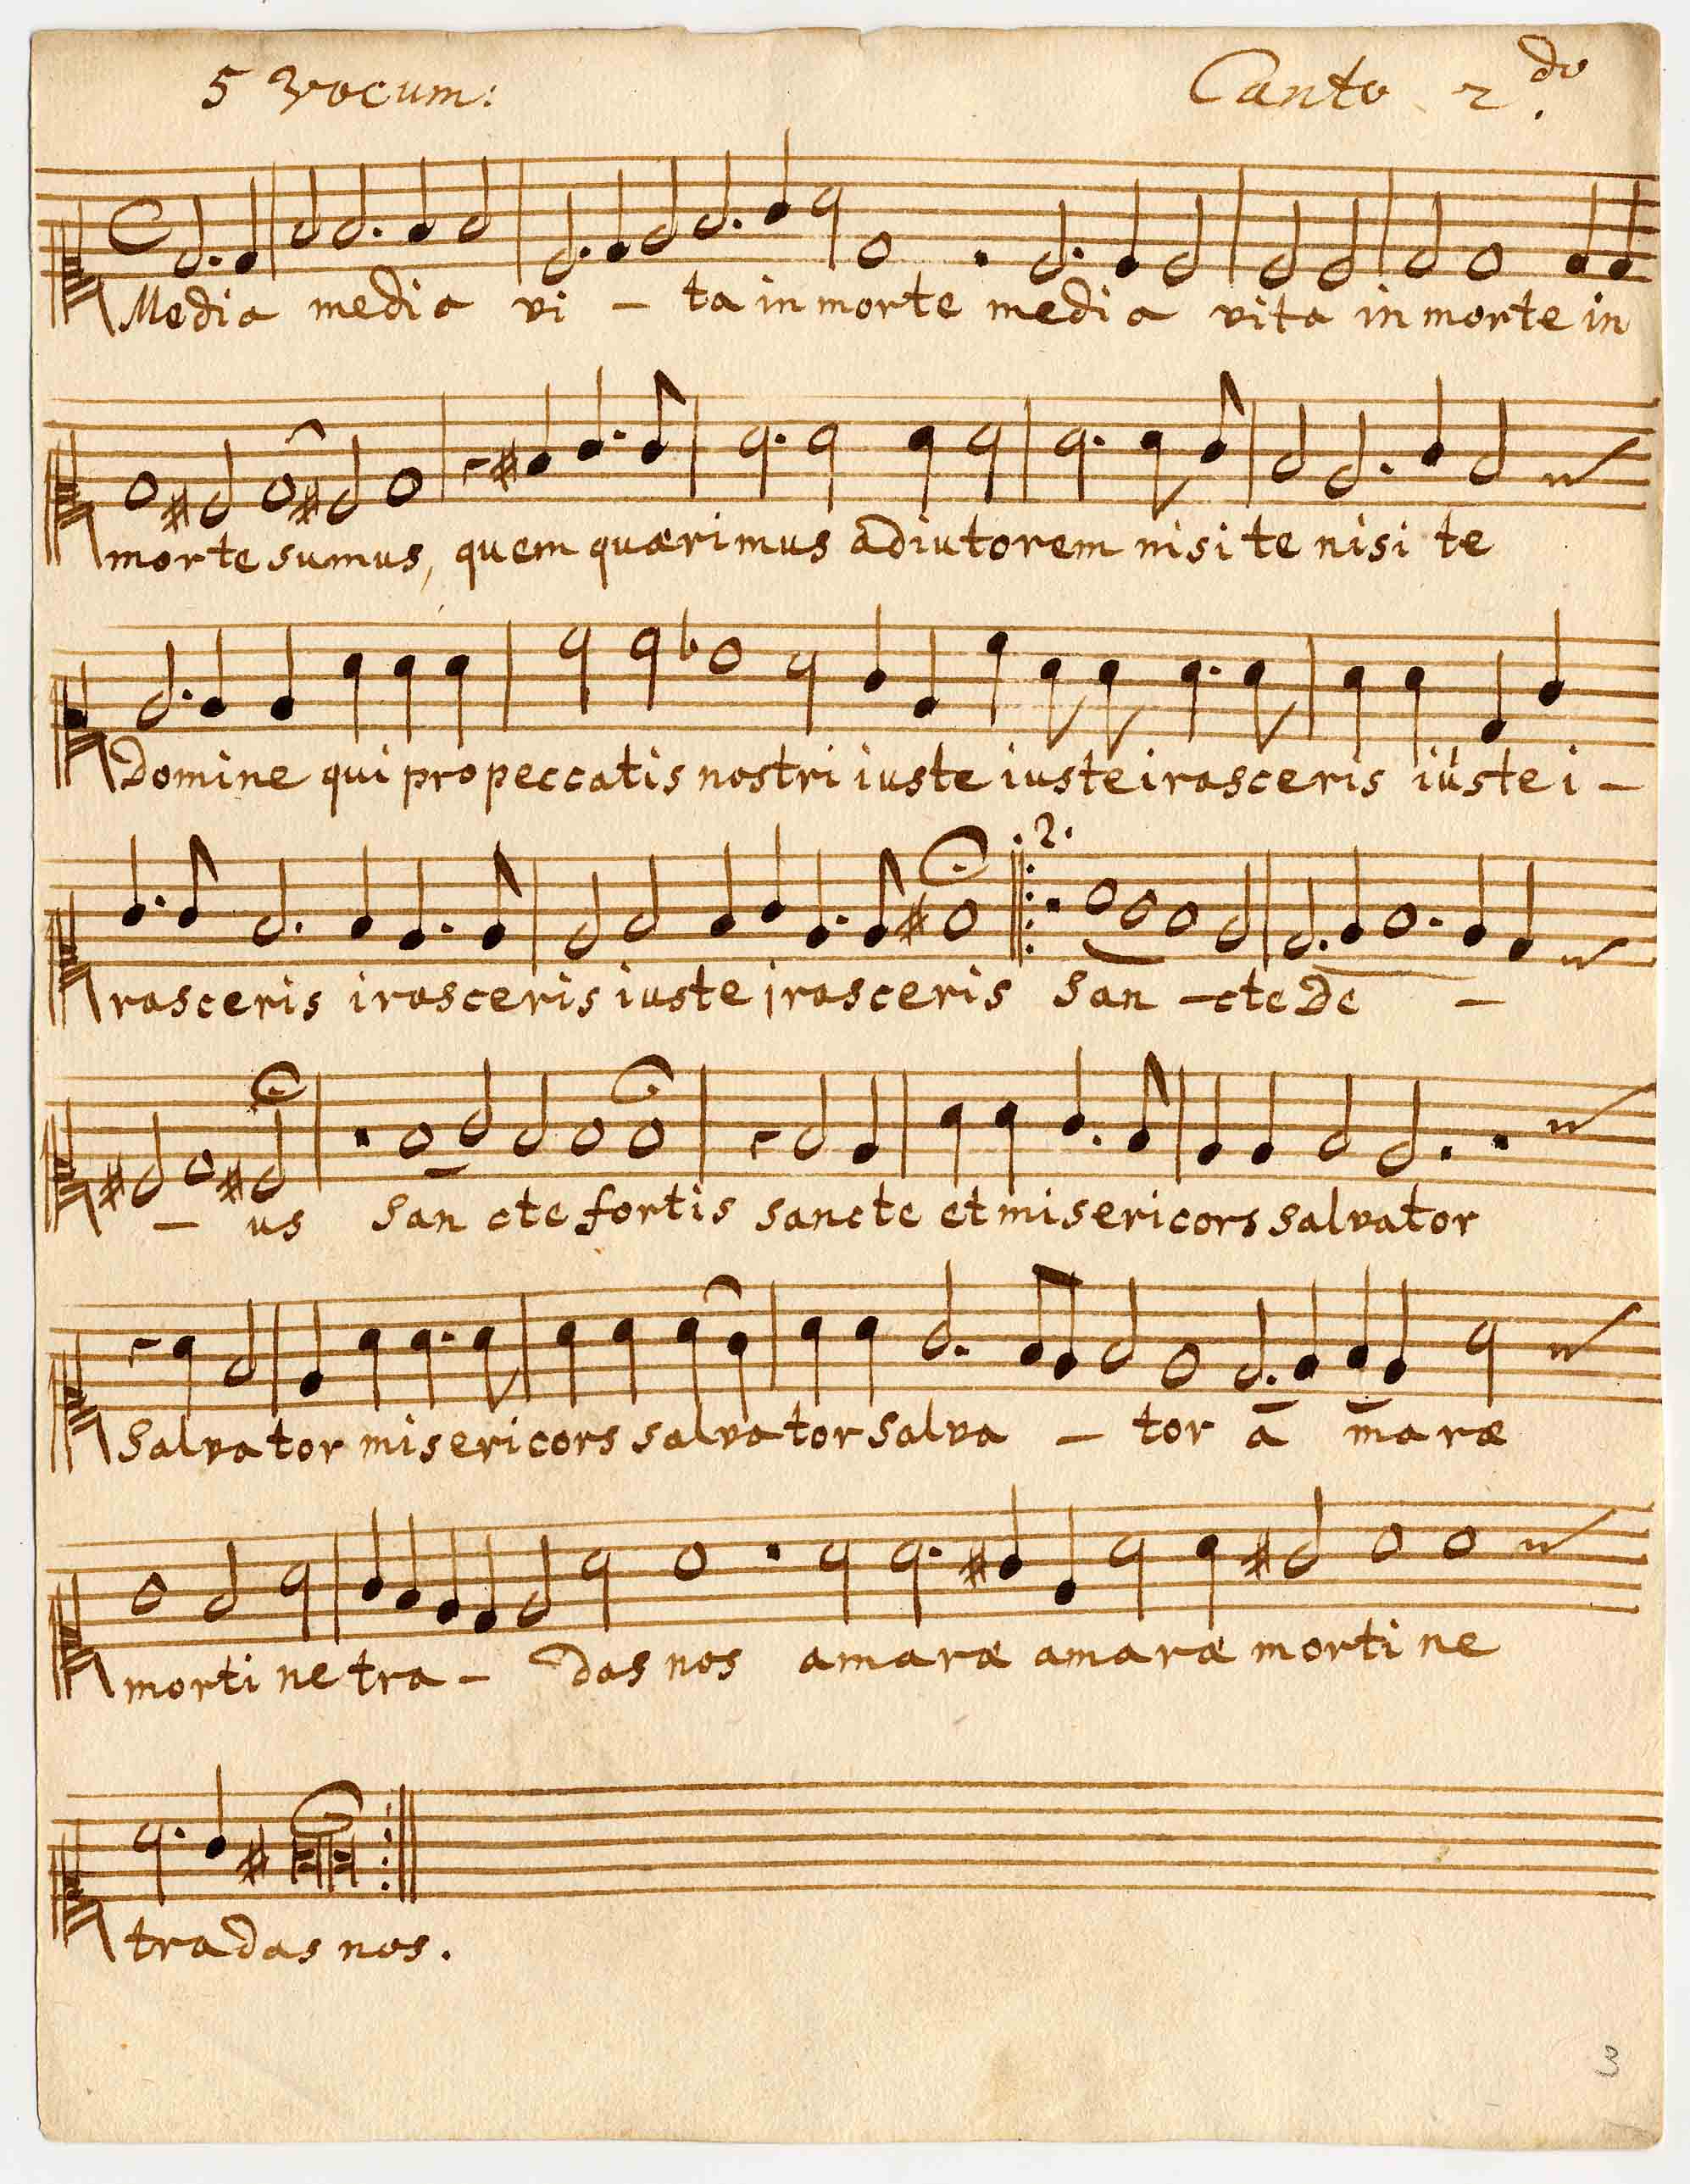 5 vocum: Canto 2do.
Media media vi - ta in morte media vita in morte in
morte sumus, quem quærimus adiutorem nisi te nisi te
Domine qui pro peccatis nostri iuste iuste irasceris iuste i -
.2.
rasceris irasceris iuste irasceris San - cte De -
- us San cte fortis sancte et misericors salvator
Salvator misericors salvator salva - tor a maræ
morti ne tra - das nos amaræ amaræ morti ne
tradas nos.
3